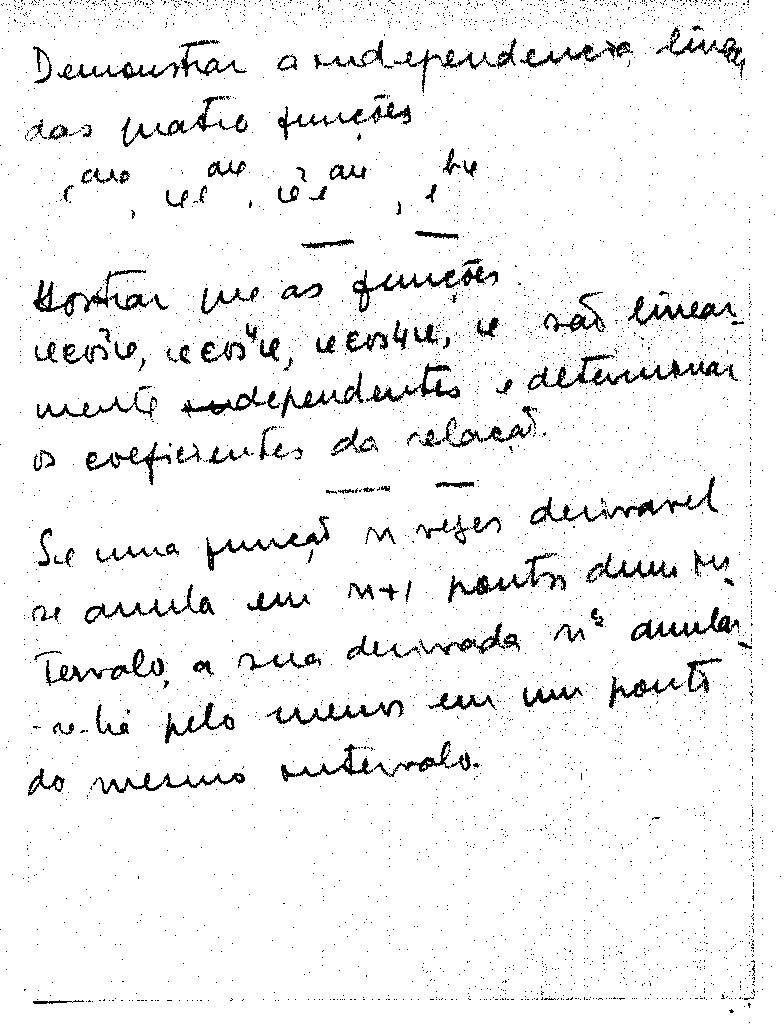 Demonstrar a independencia linear
das quatro funções
e^{ax}, xe^{ax}, x²e^{ax}, e^{bx}
Mostrar que as funções
x cos²x, x cos⁴x, x cos4x, x são linear-
mente dependentes e determinar
os coeficientes da relação.
Se uma função n vezes derivavel
se anula em n+1 pontos dum in-
tervalo, a sua derivada nª anular-
-se-há pelo menos em um ponto
do mesmo intervalo.